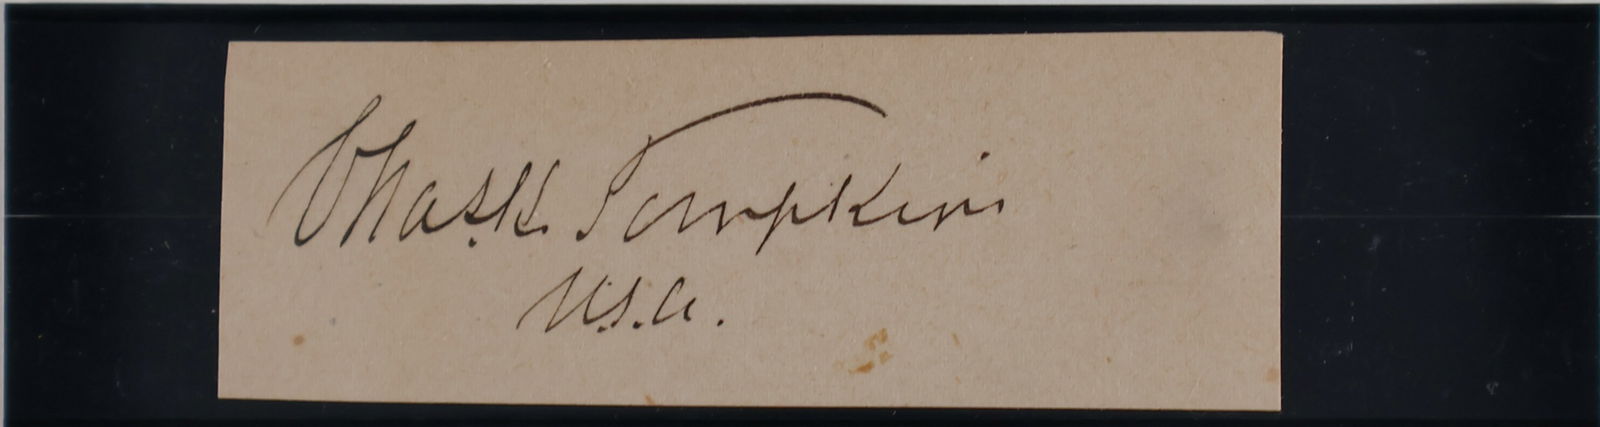 Chas. H. Tompkins
U.S.A.